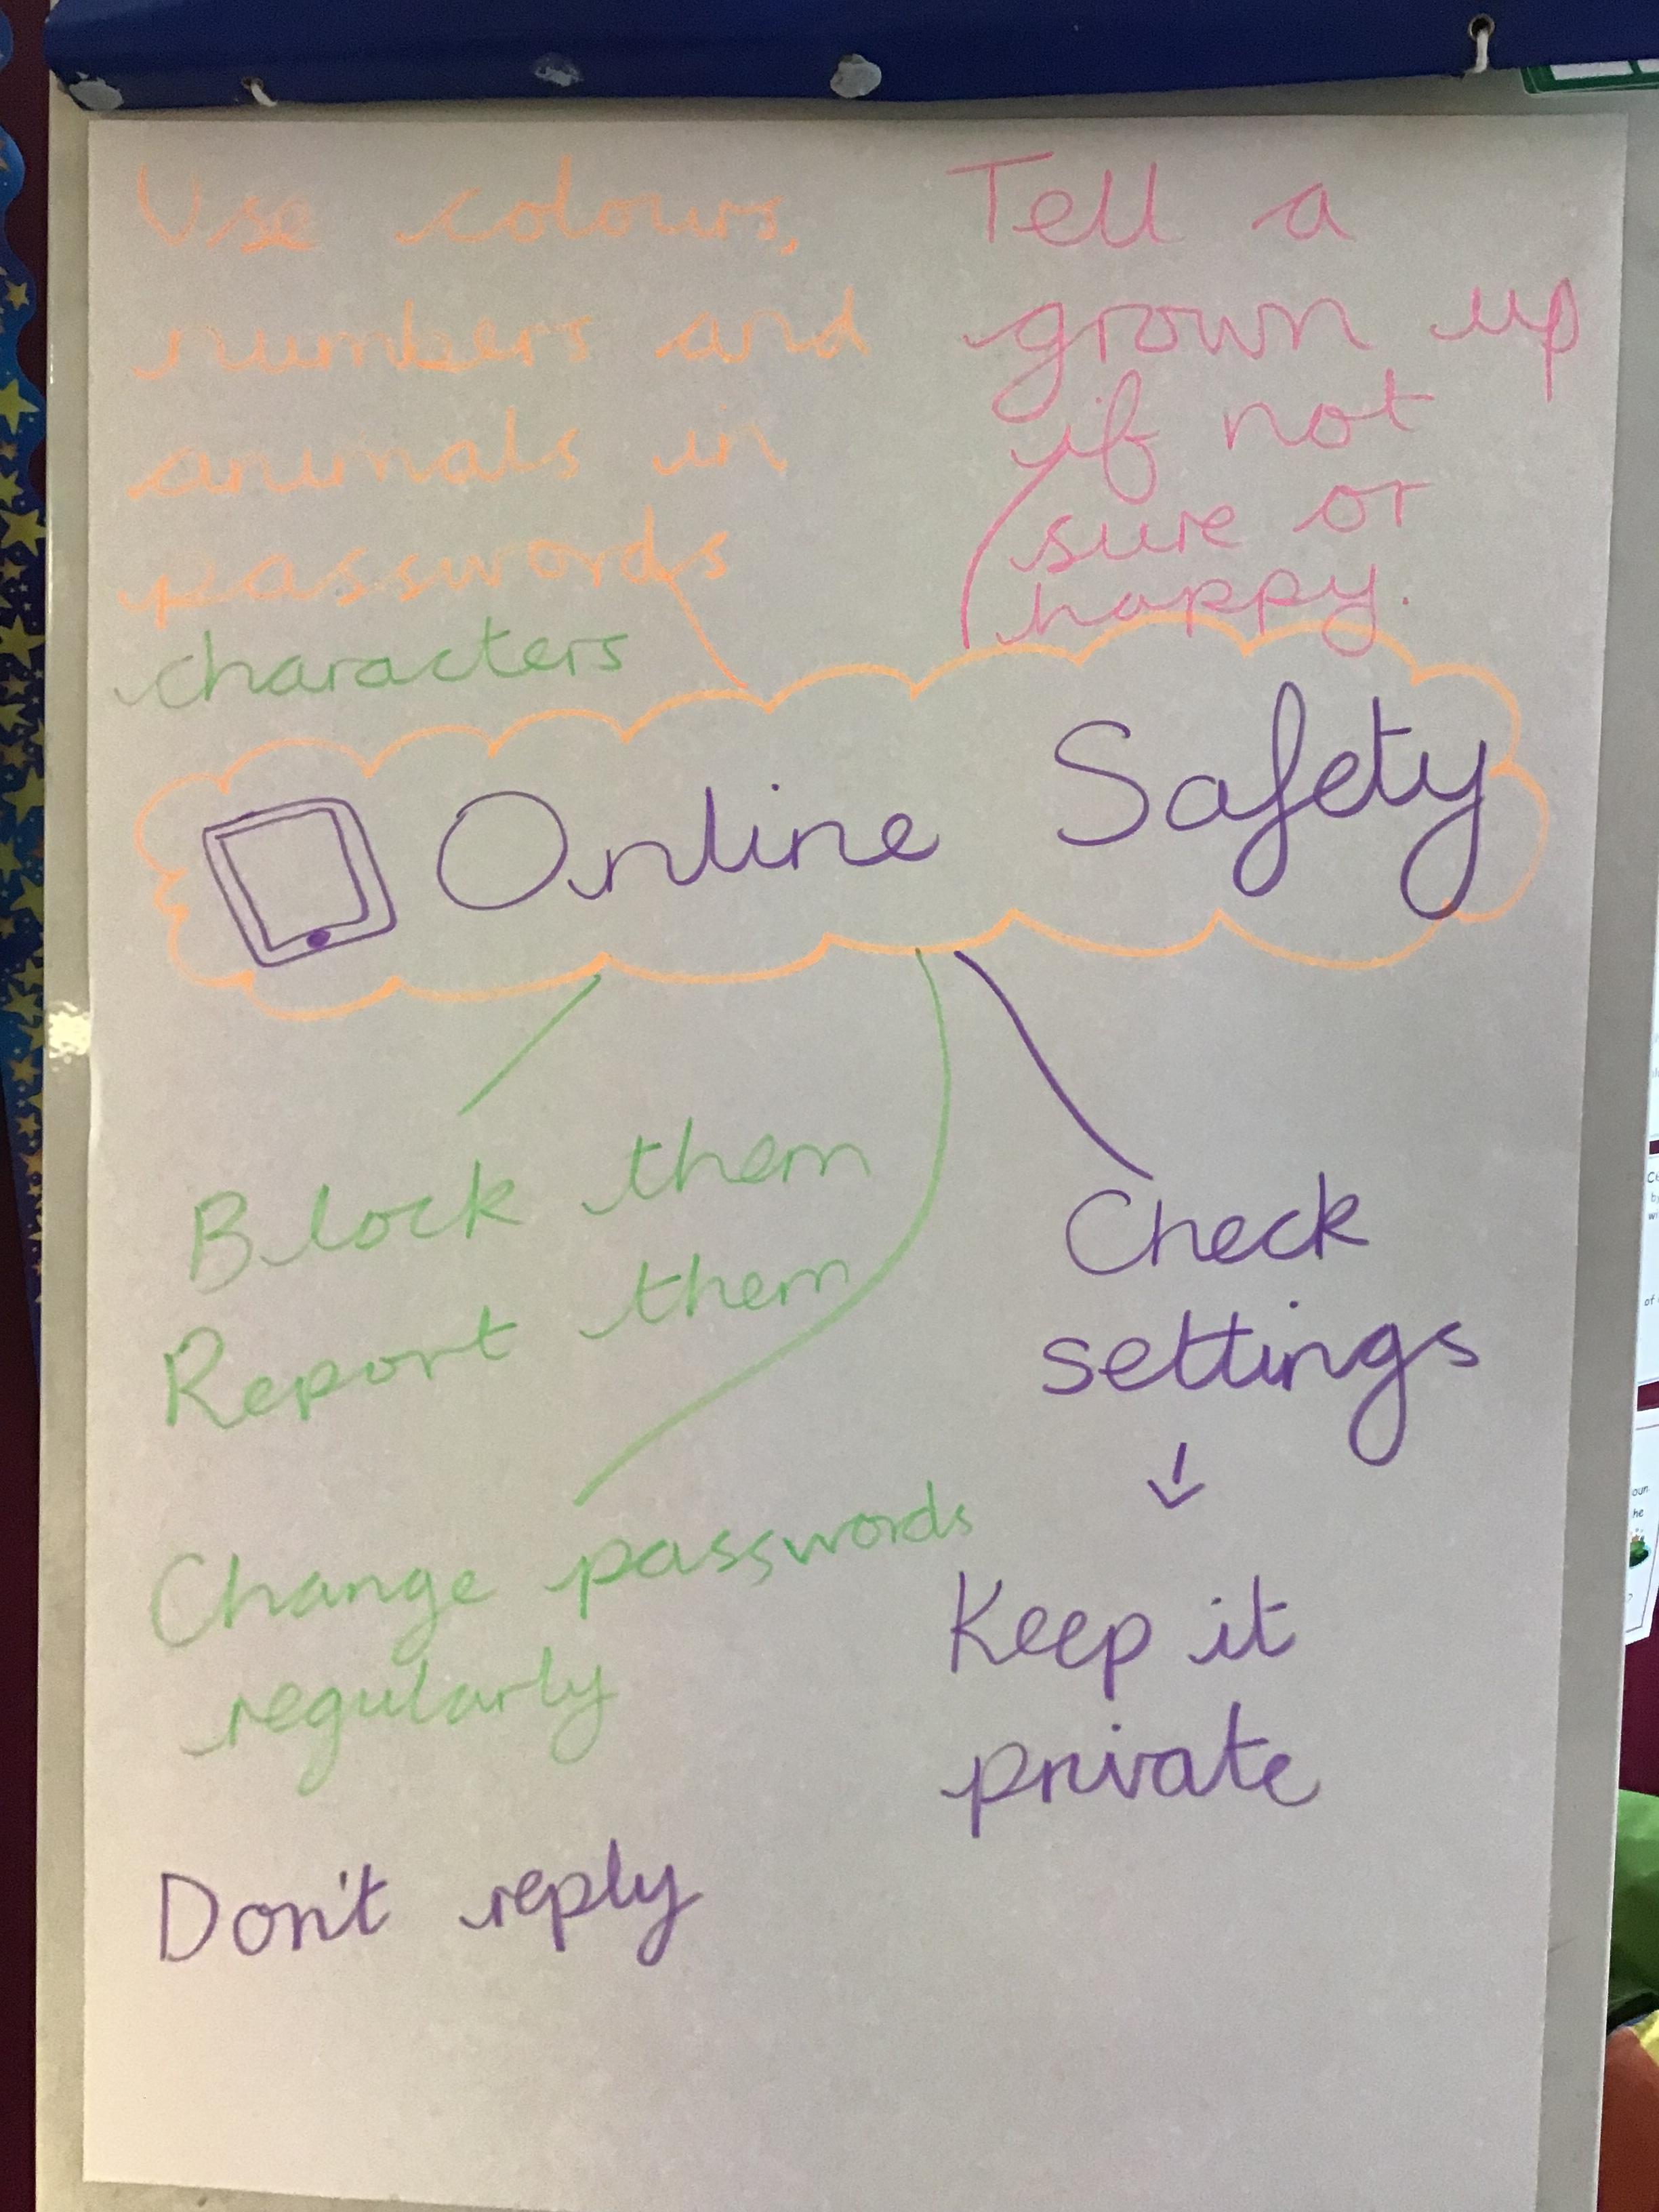 Use colours,
numbers and
animals in
passwords
characters
Tell a
grown up
if not
sure or
happy.
Online Safety
Block them
Report them
Change passwords
regularly
Don't reply
Check
settings
↓
Keep it
private